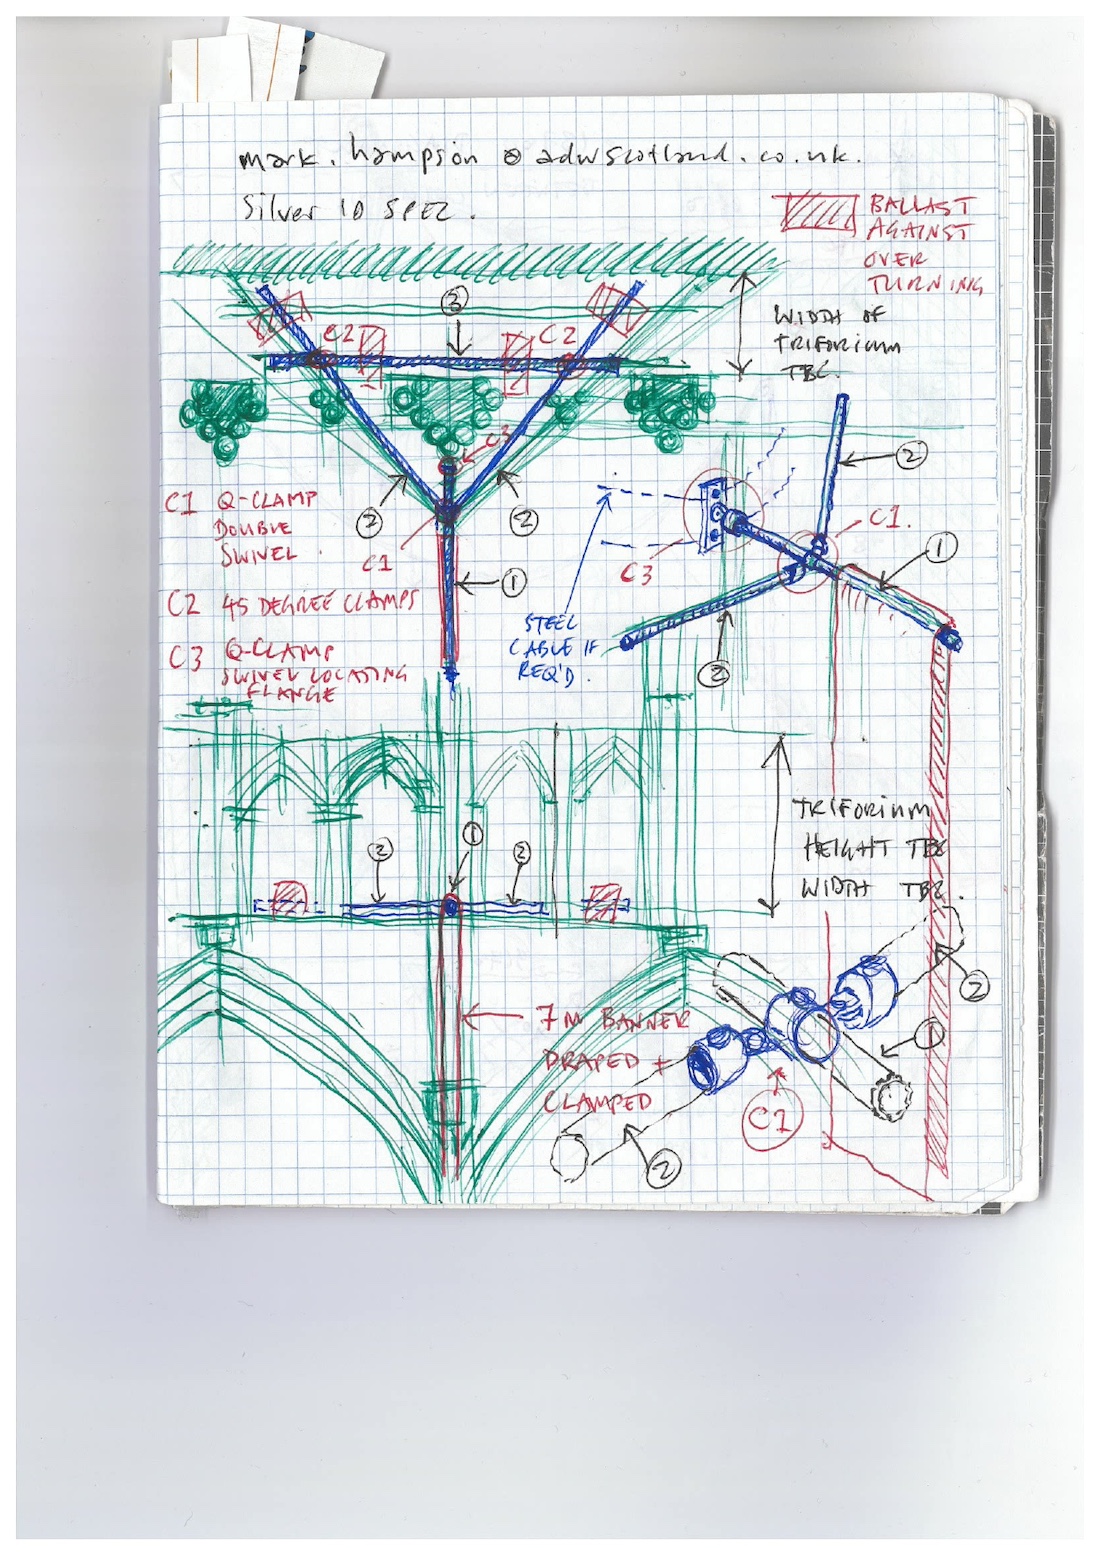 mark.hampson @ adwscotland.co.uk.
Silver 10 SPEZ.
BALLAST
AGAINST
OVER
TURNING
3
C2
C2
WIDTH OF
TRIFORIUM
TBC.
2
C1 Q-CLAMP
DOUBLE
SWIVEL
2
2
C1
C1.
1
1
C3
C2 45 DEGREE CLAMPS
STEEL
CABLE IF
REQ'D.
C3 Q-CLAMP
SWIVEL LOCATING
FLANGE
2
TRIFORIUM
HEIGHT TBC
WIDTH TBC.
2
1
2
7M BANNER
DRAPED +
CLAMPED
2
1
C1
2